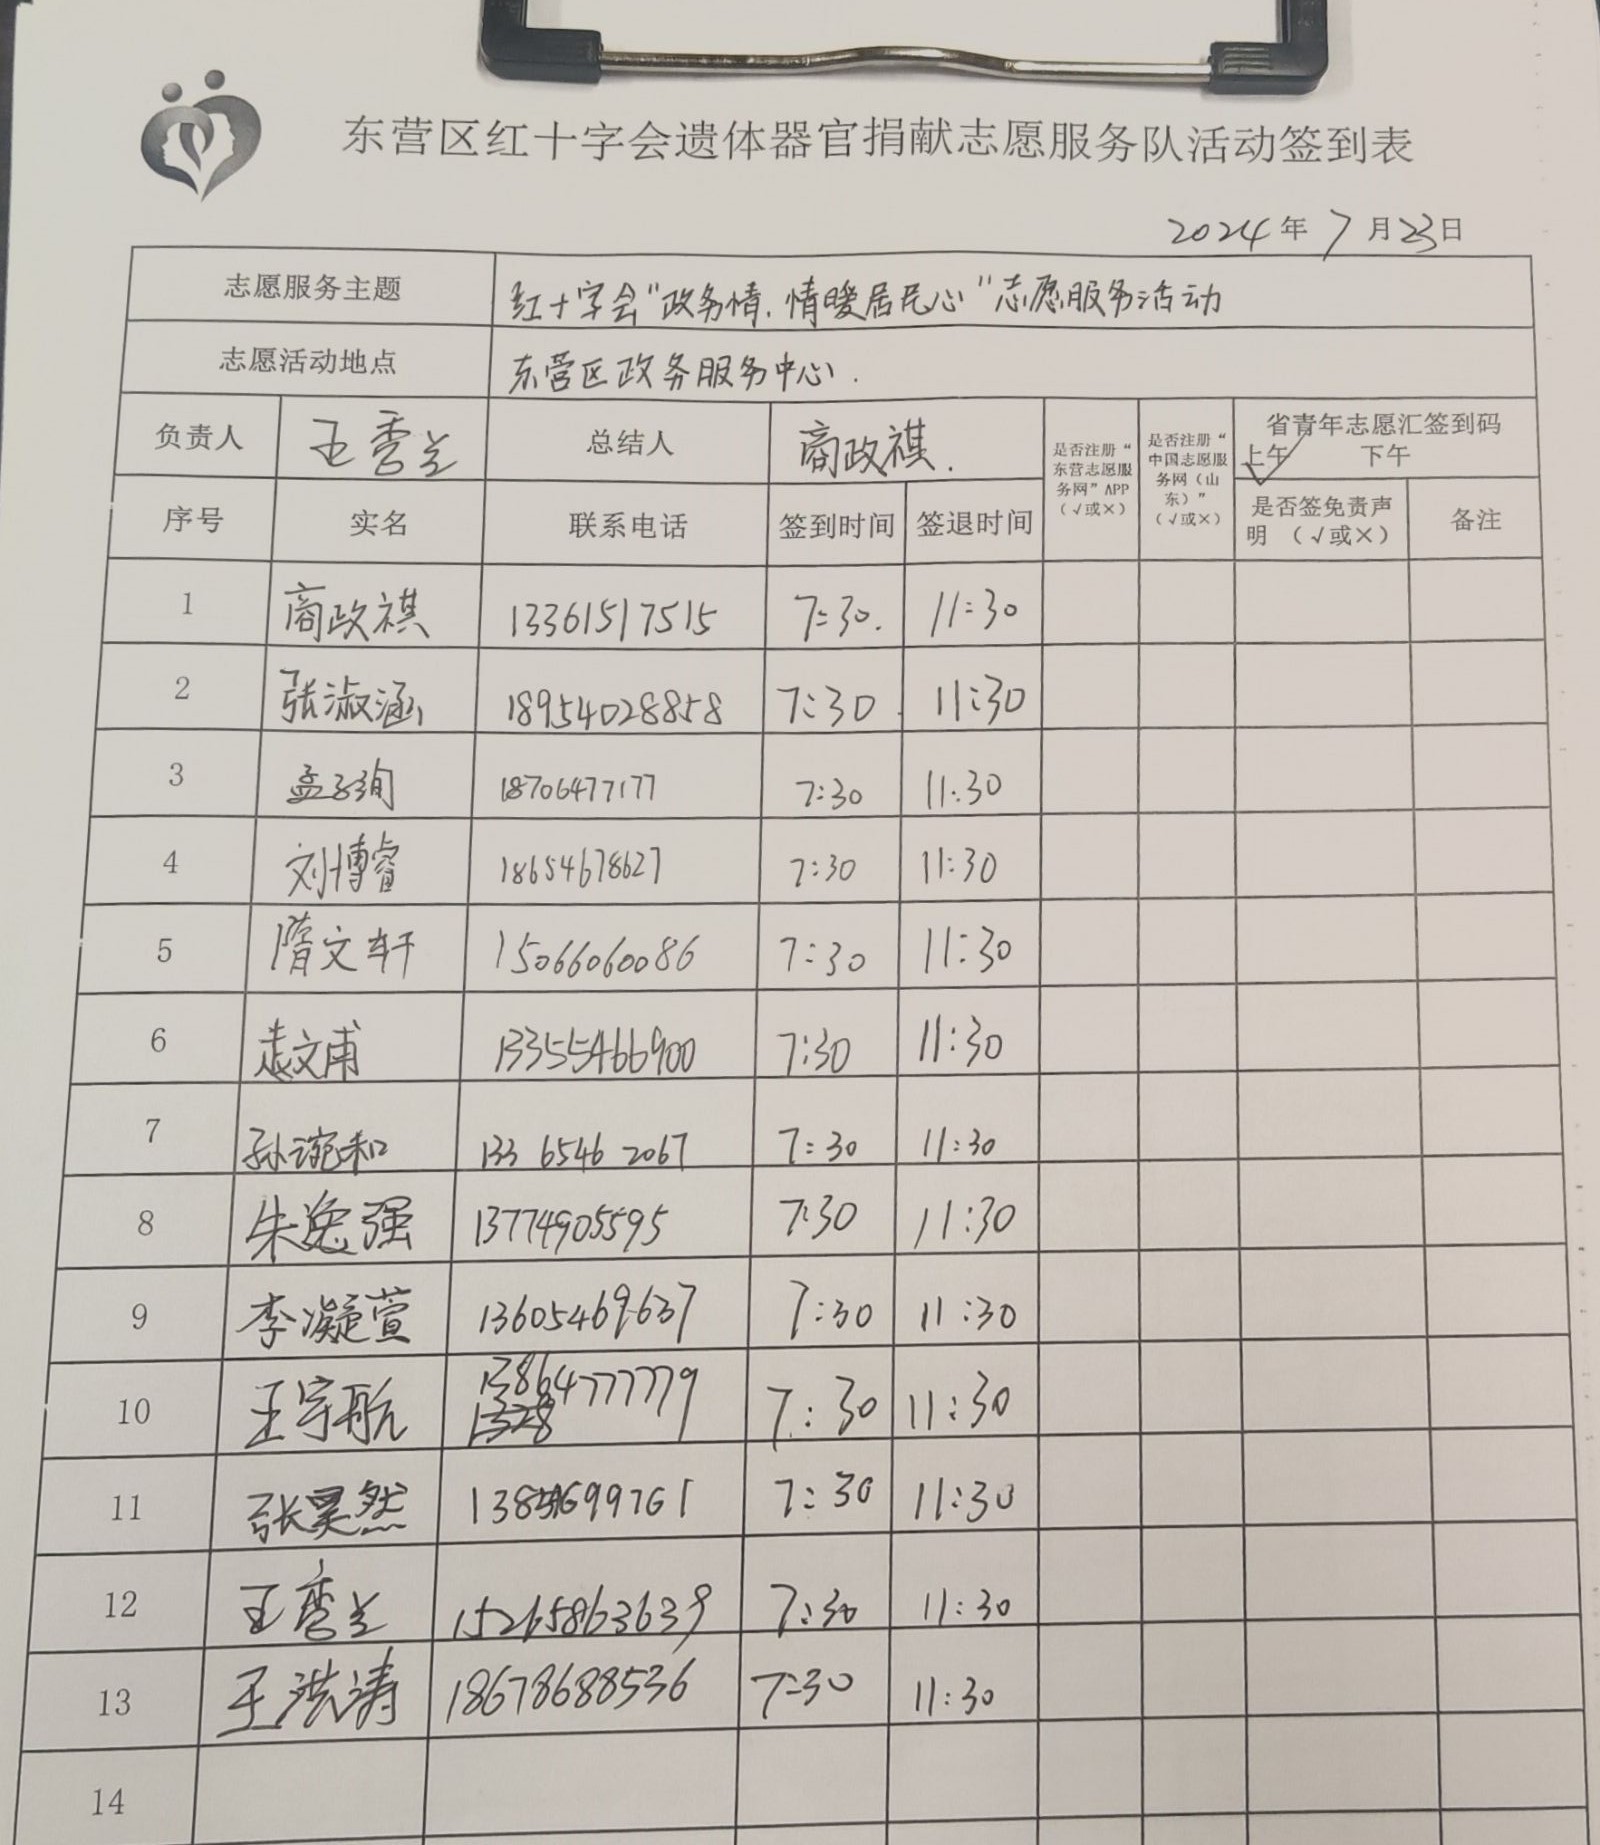 东营区红十字会遗体器官捐献志愿服务队活动签到表
2024年7月23日
志愿服务主题 红十字会"政务情.情暖居民心"志愿服务活动
志愿活动地点 东营区政务服务中心.
负责人 王秀兰 总结人 商政祺. 是否注册“东营志愿服务网”APP（√或×） 是否注册“中国志愿服务网（山东）”（√或×） 省青年志愿汇签到码
上午√ 下午
序号 实名 联系电话 签到时间 签退时间 是否签免责声明（√或×） 备注
1 商政祺 13361517515 7:30. 11:30
2 张淑涵 18954028858 7:30. 11:30
3 孟子珣 18706477177 7:30 11:30
4 刘博睿 18654678627 7:30 11:30
5 隋文轩 15066060086 7:30 11:30
6 袁文甫 13355466900 7:30 11:30
7 孙谕和 133 6546 2067 7:30 11:30
8 朱逸强 13774905595 7:30 11:30
9 李凝萱 13605469637 7:30 11:30
10 王宇航 13864777779 7:30 11:30
11 张昊然 13854699761 7:30 11:30
12 王秀兰 15265863639 7:30 11:30
13 王洪涛 18678688536 7:30 11:30
14